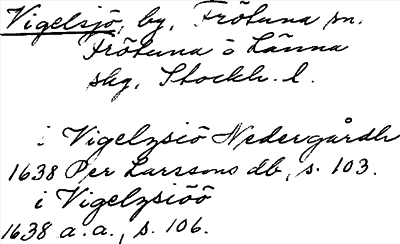 Vigelsjö, by, Frötuna sn.
Frötuna o Länna
skg, Stockh. l.
i Vigelzsiö Nedergårdh
1638 Per Larssons db, s. 103.
i Vigelzsiöö
1638 a.a., s. 106.